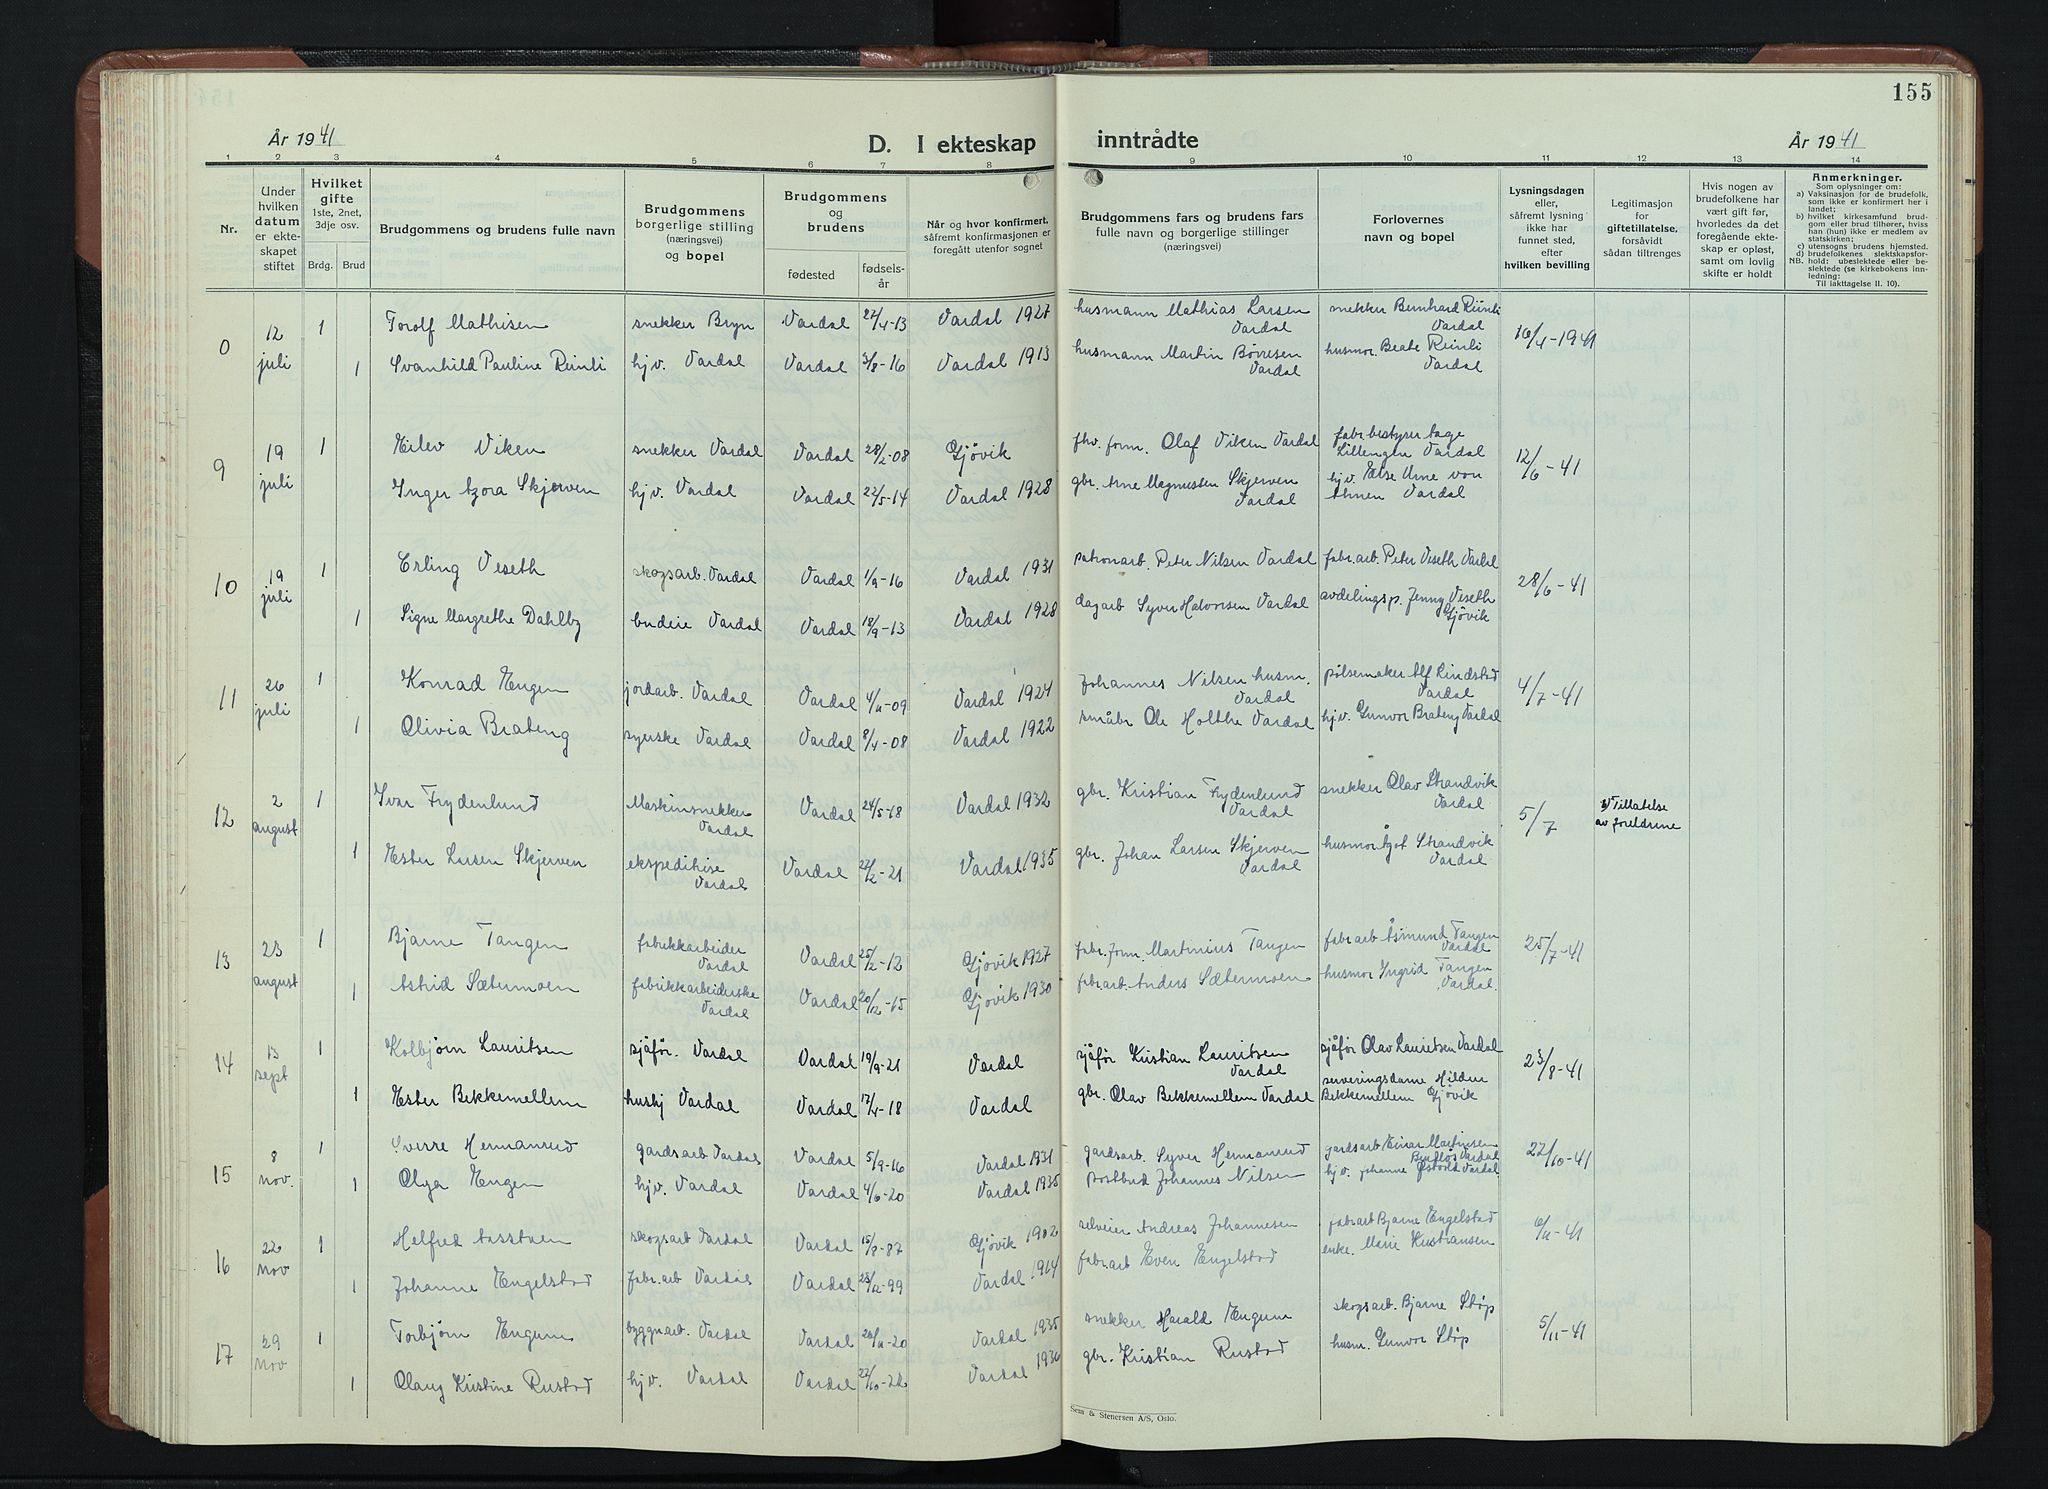 155
År 1941
D. I ekteskap inntrådte
År 1941
1 2 3 4 5 6 7 8 9 10 11 12 13 14
Nr.
Under hvilken datum er ekteskapet stiftet
Hvilket gifte 1ste, 2net, 3dje osv.
Brdg. Brud
Brudgommens og brudens fulle navn
Brudgommens borgerlige stilling (næringsvei) og bopel
Brudgommens og brudens
fødested
fødselsår
Når og hvor konfirmert, såfremt konfirmasjonen er foregått utenfor sognet
Brudgommens fars og brudens fars fulle navn og borgerlige stillinger (næringsvei)
Forlovernes navn og bopel
Lysningsdagen eller, såfremt lysning ikke har funnet sted, efter hvilken bevilling
Legitimasjon for giftetillatelse, forsåvidt sådan tiltrenges
Hvis nogen av brudefolkene har vært gift før, hvorledes da det foregående ekteskap er opløst, samt om lovlig skifte er holdt
Anmerkninger.
Som oplysninger om:
a) Vaksinasjon for de brudefolk, som ikke er konfirmert her i landet;
b) hvilket kirkesamfund brudgom eller brud tilhører, hvis han (hun) ikke er medlem av statskirken;
c) utensogns brudens hjemsted.
d) brudefolkenes slektskapsforhold: ubeslektede eller beslektede (se kirkebokens innledning:
NB.
Til iakttagelse II. 10).
0 12 juli 1 Torolf Mathisen snekker Bryn Vardal 27/4-13 Vardal 1927 husmann Mathias Larsen Vardal snekker Bernhard Rünli Vardal 16/4-1941
1 Svanhild Pauline Rünli hjv. Vardal Vardal 3/8-16 Vardal 1913 husmann Martin Børresen Vardal husmor. Beate Rünli Vardal
9 19 juli 1 Eilev Viken snekker Vardal Vardal 28/2-08 Gjövik fhv. form. Olaf Viken Vardal fabr.bestyrer Aage Lillengen Vardal 12/6-41
Inger Azora Skjerven hjv. Vardal Vardal 22/5-14 Vardal 1928 gbr. Arne Magnussen Skjerven Vardal hjv. Else Urne von Ahnen Vardal
10 19 juli 1 Erling Veseth skogsarb. Vardal Vardal 1/9-16 Vardal 1931 patronarb. Peter Nilsen Vardal fabr.arb. Peter Veseth Vardal 28/6-41
1 Signe Margrethe Dahlby budeie Vardal Vardal 18/9-13 Vardal 1928 dagarb Syver Halvorsen Vardal avdelingsp. Jenny Veseth Gjøvik
11 26 juli 1 Konrad Engen jordarb. Vardal Vardal 4/11-09 Vardal 1924 Johannes Nilsen husm. Vardal pølsemaker Alf Lindstad Vardal 4/7-41
1 Olivia Brateng syerske Vardal Vardal 8/4-08 Vardal 1922 småbr Ole Holthe Vardal hjv. Gunvor Brateng Vardal
12 2 august 1 Ivar Frydenlund Maskinsnekker Vardal Vardal 24/5-18 Vardal 1932 gbr. Kristian Frydenlund Vardal snekker Olav Strandvik Vardal 5/7 Tillatelse av foreldrene
1 Ester Larsen Skjerven ekspeditrise Vardal Vardal 22/2-21 Vardal 1935 gbr. Johan Larsen Skjerven Vardal husmor Ågot Strandvik Vardal
13 23 august 1 Bjarne Tangen fabrikkarbeider Vardal Vardal 25/2-12 Gjøvik 1927 fabr.form. Martinius Tangen fabr.arb Åsmund Tangen Vardal 25/7-41
1 Astrid Sætermoen fabrikkarbeiderske Vardal Vardal 20/12-15 Gjøvik 1930 fabr.arb. Anders Sætermoen husmor Ingrid Tangen Vardal.
14 13 sept 1 Kolbjørn Lauritsen sjåfør. Vardal Vardal 19/9-21 Vardal sjåfør Kristian Lauritsen Vardal sjåfør Olav Lauritsen Vardal 23/8-41
1 Ester Bekkemellem hushj Vardal Vardal 17/4-18 Vardal gbr. Olav Bekkemellem Vardal serveringsdame Hildur Bekkemellem Gjøvik
15 8 nov. 1 Sverre Hermanrud gardsarb Vardal Vardal 5/9-16 Vardal 1931 gardsarb. Syver Hermanrud gardsarb Einar Martinsen Vardal 27/10-41
1 Olga Engen hjv. Vardal Vardal 4/6-20 Vardal 1935 postbud Johannes Nilsen hjv. Johanne Vardal
16 22 nov 1 Helfred Aasstuen skogsarb Vardal Vardal 15/8-87 Gjøvik 1902 selveier Andreas Johannesen fabr.arb Bjarne Engelstad 6/11-41
1 Johanne Engelstad fabr.arb Vardal Vardal 23/11-99 Vardal 1914 fabr.arb Even Engelstad enke. Marie Kristiansen
17 29 nov 1 Torbjørn Engum byggnarb. Vardal Vardal 26/11-20 Vardal 1935 snekker Harald Engum skogsarb. Bjarne Støp 5/11-41
1 Olaug Kristine Rustad hjv. Vardal Vardal 22/10-22 Vardal 1936 gbr. Kristian Rustad husm. Gunvor Støp
Sem & Stenersen A/S, Oslo.